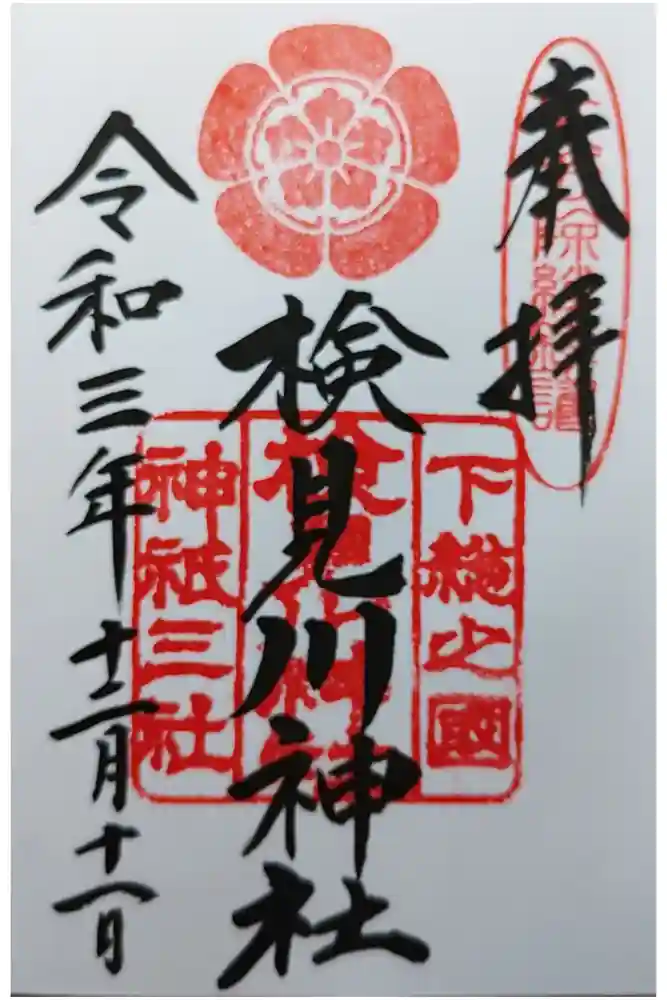 奉拝
下総之國
検見川神社
神祇三社
令和三年十二月十一日